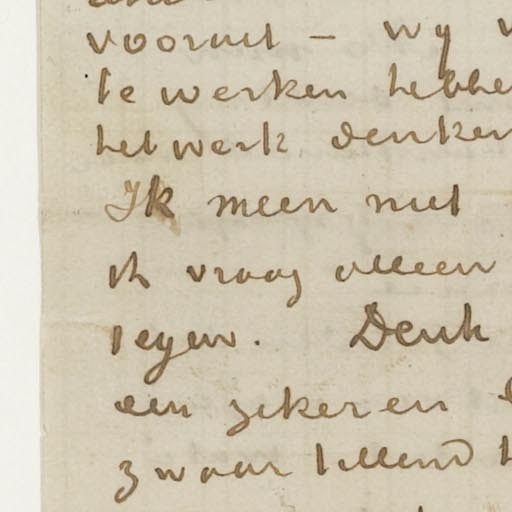 vooruit – wij
te werken hebbe
het werk denken
Ik meen niet
ik vraag alleen
tegen. Denk
een zekeren
zwaar tillend